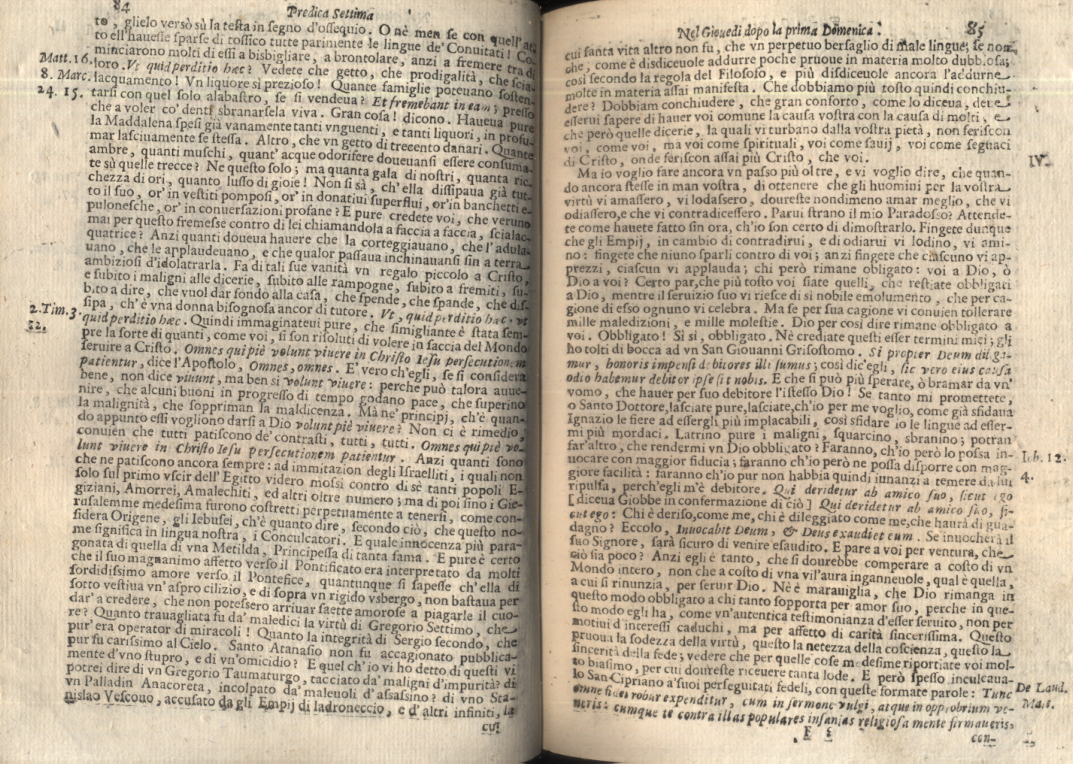 84
Predica Settima
to, glielo versò sù la testa in segno d'ossequio. O nè men se con quell'at
Matt. 16. to ell'hauesse sparse di tossico tutte parimente le lingue de' Conuitati! Co
8. Marc. minciarono molti di essi a bisbigliare, a brontolare, anzi a fremere tra di
24. 15. loro. Vt quid perditio hæc? Vedete che getto, che prodigalità, che scia-
lacquamento! Vn liquore sì prezioso! Quante famiglie poteuano sosten-
tarsi con quel solo alabastro, se si vendeua? Et fremebant in eam; presso
che a voler co' denti sbranarsela viva. Gran cosa! dicono. Haueua pure
la Maddalena spesi già vanamente tanti vnguenti, e tanti liquori, in profu-
mar lasciuamente se stessa. Altro, che vn getto di trecento danari. Quante
ambre, quanti muschi, quant'acque odorifere doueuansi essere consuma-
te sù quelle trecce? Ne questo solo; ma quanta gala di nostri, quanta ric-
chezza di ori, quanto lusso di gioie! Non si sà, ch'ella dissipaua già tut-
to il suo, or' in vestiti pomposi, or' in donatiui superflui, or' in banchetti e-
pulonesche, or' in conuersazioni profane? E pure credete voi, che veruno
mai per questo fremesse contro di lei chiamandola a faccia a faccia, scialac-
quatrice? Anzi quanti doueua hauere che la corteggiauano, che l'adula-
uano, che le applaudeuano, e che qualor passaua inchinauansi sin a terra
ambiziosi d'idolatrarla. Fa di tali sue vanità vn regalo piccolo a Cristo,
e subito i maligni alle dicerie, subito alle rampogne, subito a fremiti, su-
bito a dire, che vuol dar fondo alla casa, che spende, che spande, che dis-
2. Tim. 3. sipa, ch'è vna donna bisognosa ancor di tutore. Vt, quid perditio hæc. vt
12. quid perditio hæc. Quindi immaginateui pure, che simigliante è stata sem-
pre la sorte di quanti, come voi, si son risoluti di volere in faccia del Mondo
seruire a Cristo. Omnes qui piè volunt viuere in Christo Iesu persecutionem
patientur, dice l'Apostolo, Omnes, omnes. E' vero ch'egli, se si considera
bene, non dice viuunt, ma ben sì volunt viuere: perche può talora auue-
nire, che alcuni buoni in progresso di tempo godano pace, che superino
la malignità, che sopprimano la maldicenza. Mà ne' principj, ch'è quan-
do appunto essi vogliono darsi a Dio volunt piè viuere? Non ci è rimedio,
conuien che tutti patiscono de' contrasti, tutti, tutti. Omnes qui piè vo-
lunt viuere in Christo Iesu persecutionem patientur. Anzi quanti sono
che ne patiscono ancora sempre: ad immitazion degli Israelliti, i quali non
solo sul primo vscir dell'Egitto videro mossi contro di sè tanti popoli E-
giziani, Amorrei, Amalechiti, ed altri oltre numero; ma di poi sino i Gie-
rusalemme medesima furono costretti perpetuamente a tenersi, come con-
sidera Origene, gli Iebusei, ch'è quanto dire, secondo ciò, che questo no-
me significa in lingua nostra, i Conculcatori. E quale innocenza più para-
gonata di quella di vna Metilda, Principessa di tanta fama. E pure è certo
che il suo magnanimo affetto verso il Pontificato era interpretato da molti
sordidissimo amore verso il Pontefice, quantunque si sapesse ch'ella di
sotto vestiua vn' aspro cilizio, e di sopra vn rigido vsbergo, non bastaua per
dar' a credere, che non potessero arriuar saette amorose a piagarle il cuo-
re? Quanto trauagliata fu da' maledici la virtù di Gregorio Settimo, che
pur'era operator di miracoli! Quanto la integrità di Sergio secondo, che
pur fu carissimo al Cielo. Santo Atanasio non fu accagionato pubblica-
mente d'vno stupro, e di vn'omicidio? E quel ch'io vi ho detto di questi vi
potrei dire di vn Gregorio Taumaturgo, tacciato da' maligni d'impurità? di
vn Palladin Anacoreta, incolpato da' maleuoli d'assassino? di vno Sta-
nislao Vescouo, accusato da gli Empij di ladroneccio, e d'altri infiniti, la
cui
Nel Giouedì dopo la prima Domenica.
85
cui santa vita altro non fu, che vn perpetuo bersaglio di male lingue; se non
che, come è disdiceuole addurre poche pruoue in materia molto dubbiosa;
così secondo la regola del Filosofo, e più disdiceuole ancora l'addurne
molte in materia assai manifesta. Che dobbiamo più tosto quindi conchiu-
dere? Dobbiam conchiudere, che gran conforto, come lo diceua, deue
esserui sapere di hauer voi comune la causa vostra con la causa di molti, e
che però quelle dicerie, la quali vi turbano dalla vostra pietà, non feriscon
voi, come voi, ma voi come spirituali, voi come sauij, voi come seguaci
di Cristo, onde feriscon assai più Cristo, che voi.
IV.
Ma io voglio fare ancora vn passo più oltre, e vi voglio dire, che quan-
do ancora stesse in man vostra, di ottenere che gli huomini per la vostra
virtù vi amassero, vi lodassero, doureste nondimeno amar meglio, che vi
odiassero, e che vi contradicessero. Parui strano il mio Paradosso? Attende-
te come hauete fatto sin ora, ch'io son certo di dimostrarlo. Fingete dunque
che gli Empij, in cambio di contradirui, e di odiarui vi lodino, vi ami-
no: fingete che niuno sparli contro di voi; anzi fingete che ciascuno vi ap-
prezzi, ciascun vi applauda; chi però rimane obligato: voi a Dio, ò
Dio a voi? Certo par, che più tosto voi siate quelli, che restiate obbligati
a Dio, mentre il seruizio suo vi riesce di sì nobile emolumento, che per ca-
gione di esso ognuno vi celebra. Ma se per sua cagione vi conuien tollerare
mille maledizioni, e mille molestie. Dio per così dire rimane obbligato a
voi. Obbligato! Sì sì, obbligato. Nè crediate questi esser termini miei; gli
ho tolti di bocca ad vn San Giouanni Grisostomo. Si propter Deum diliga-
mur, honoris impensi debitores illi sumus; così dic'egli, sic verò eius causa
odio habemur debitor ipse sit nobis. E che si può più sperare, ò bramar da vn'
vomo, che hauer per suo debitore l'istesso Dio! Se tanto mi promettete,
o Santo Dottore, lasciate pure, lasciate, ch'io per me voglio, come già sfidaua
Ignazio le fiere ad essergli più implacabili, così sfidare io le lingue ad esser-
mi più mordaci. Latrino pure i maligni, squarcino, sbranino; potran
far'altro, che rendermi vn Dio obbligato? Faranno, ch'io però lo possa in-
Iob. 12. uocare con maggior fiducia; faranno ch'io però ne possa disporre con mag-
4. giore facilità: faranno ch'io pur non habbia quindi iunanzi a temere da lui
ripulsa, perch'egli m'è debitore. Qui deridetur ab amico suo, sicut ego
[diceua Giobbe in confermazione di ciò] Qui deridetur ab amico suo, si-
cut ego: Chi è deriso, come me, chi è dileggiato come me, che haurà di gua-
dagno? Eccolo, Inuocabit Deum, & Deus exaudiet eum. Se inuocherà il
suo Signore, sarà sicuro di venire esaudito. E pare a voi per ventura, che
ciò sia poco? Anzi egli è tanto, che si dourebbe comperare a costo di vn
Mondo intero, non che a costo di vna vil'aura inganneuole, qual è quella,
a cui si rinunzia, per seruir Dio. Nè è marauiglia, che Dio rimanga in
questo modo obbligato a chi tanto sopporta per amor suo, perche in que-
sto modo egli ha, come vn'autentica testimonianza d'esser seruito, non per
motiui d'interessi caduchi, ma per affetto di carità sincerissima. Questo
pruoua la sodezza della virtù, questo la netezza della coscienza, questo la
sincerità della fede; vedere che per quelle cose medesime riportiate voi mol-
to biasimo, per cui doureste riceuere tanta lode. E però spesso inculcaua-
lo San Cipriano a'suoi perseguitati fedeli, con queste formate parole: Tunc
De Laud. omne fidei robur expenditur, cum in sermone vulgi, atque in opprobrium ve-
Mart. neris: cumque te contra illas populares insanias religiosa mente firmaueris,
F 3
con-